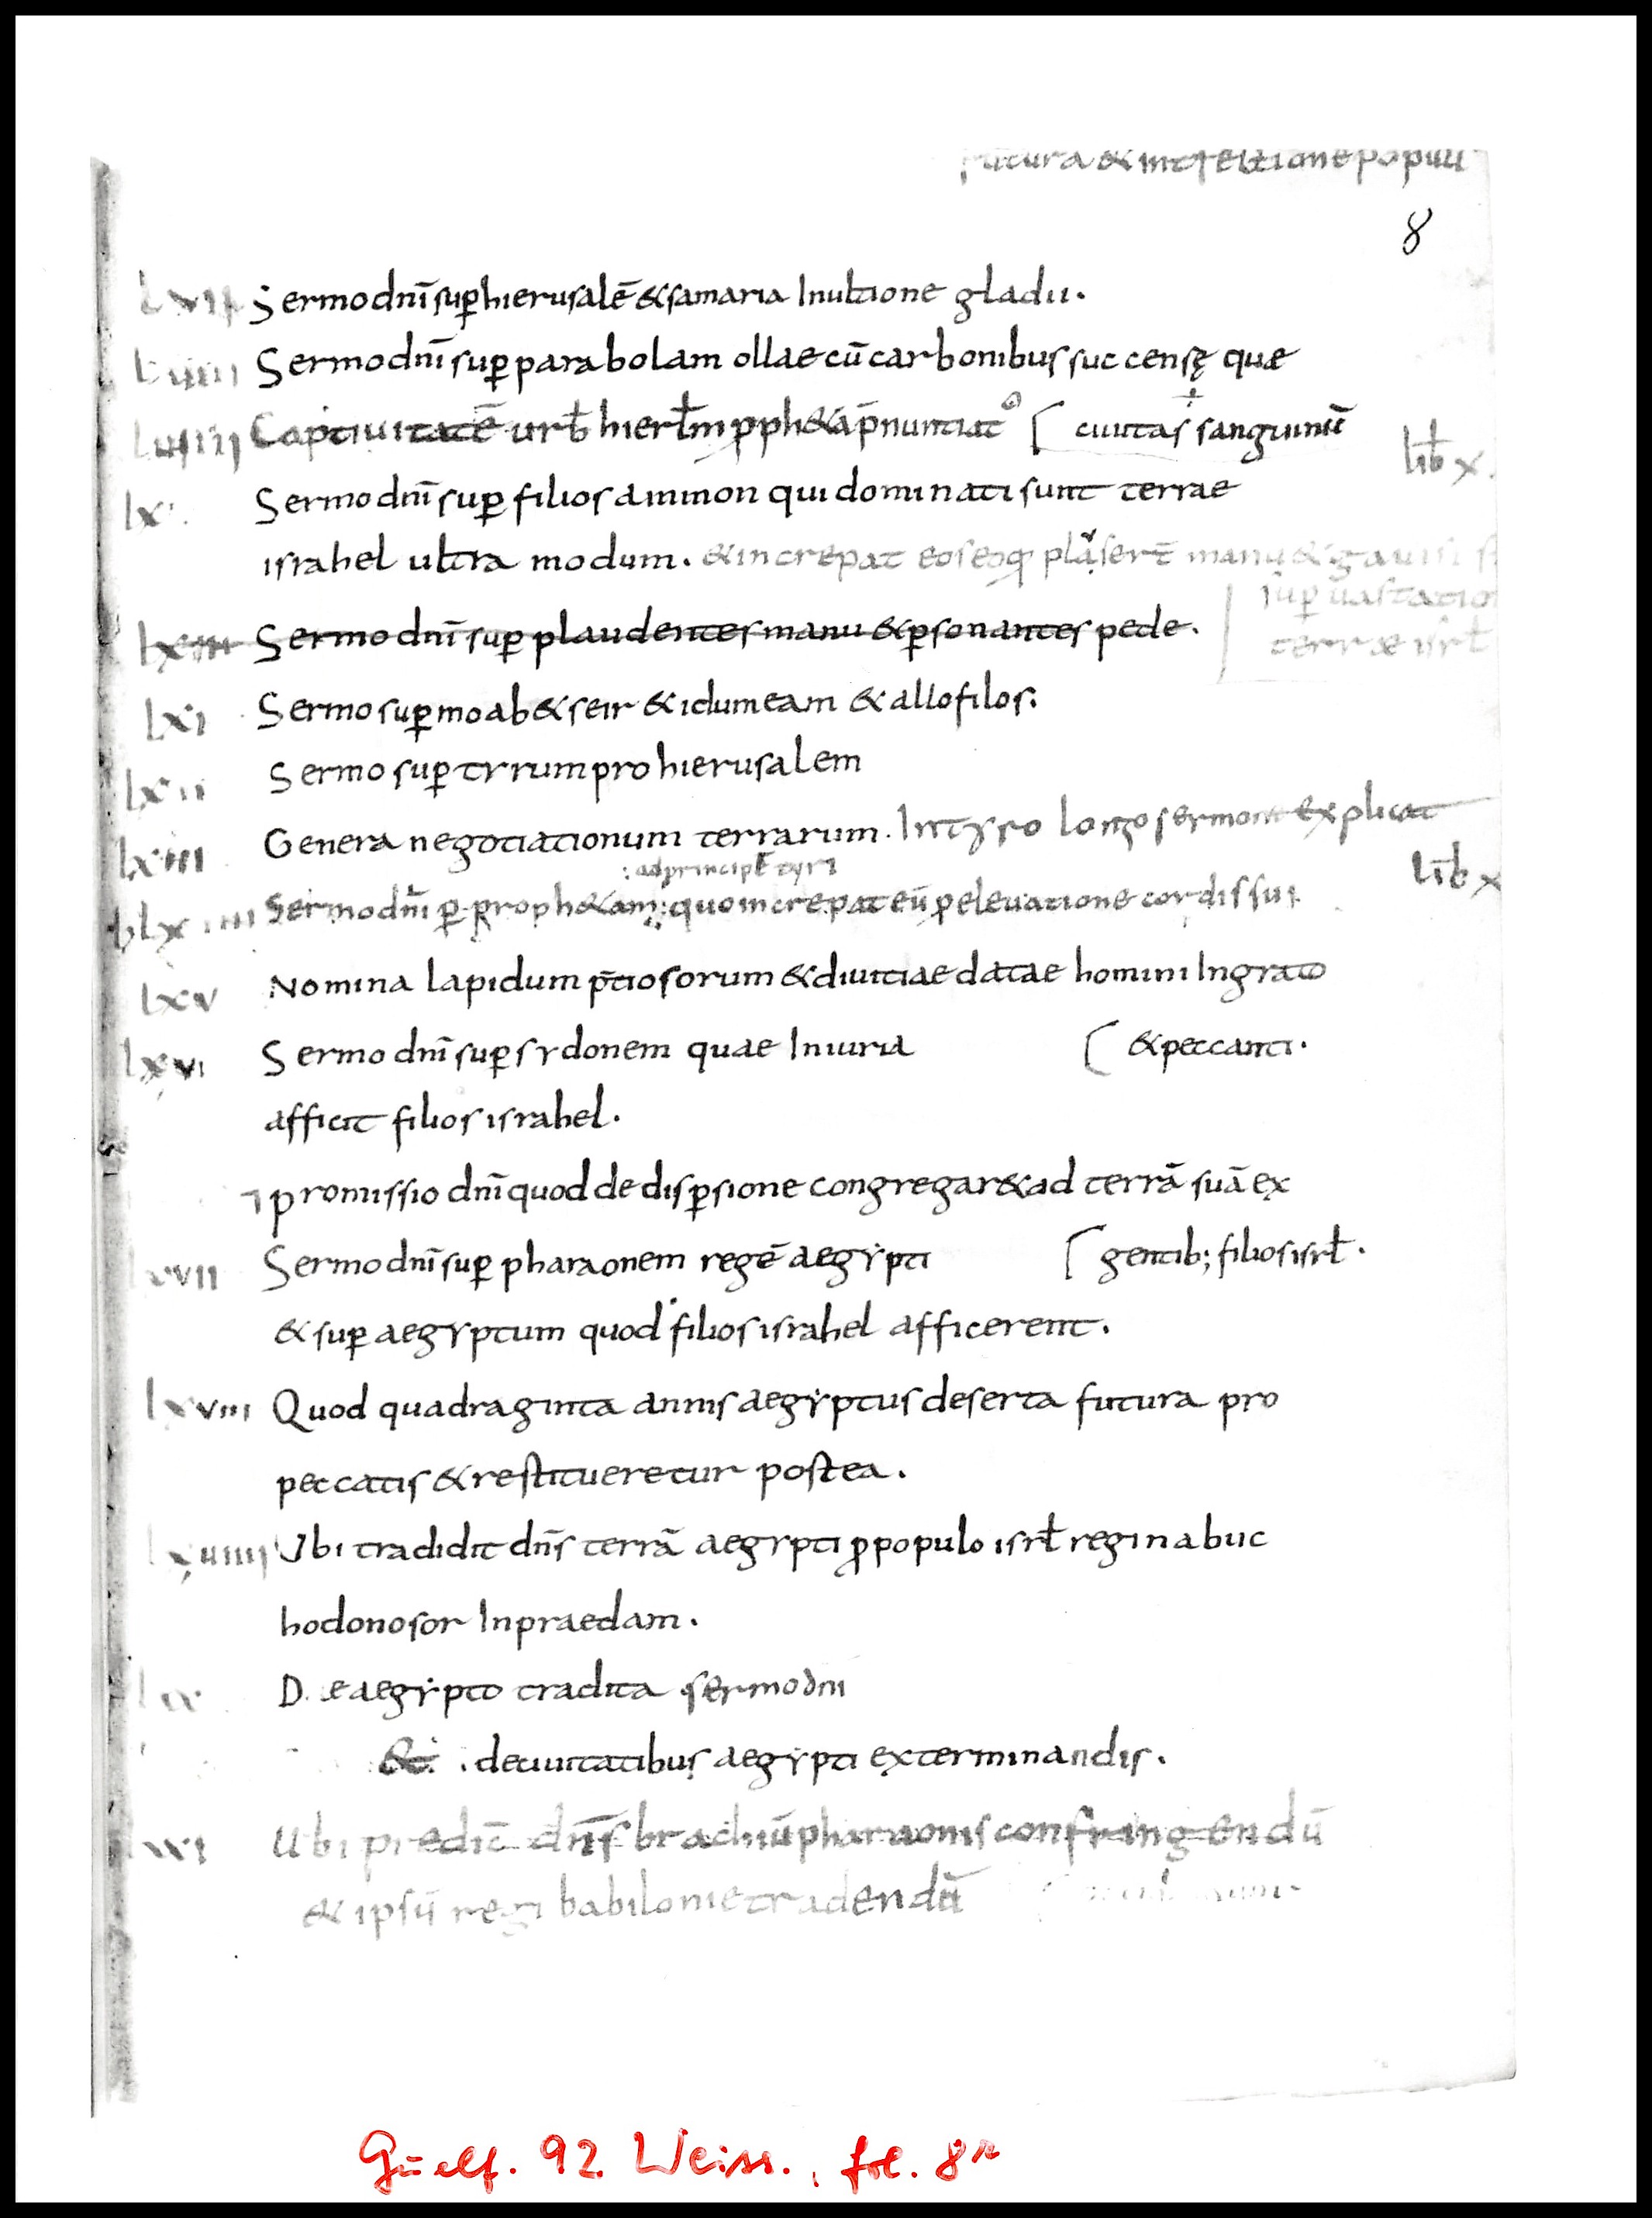 futura & intfectione populi
8
lvii Sermo dnī suꝑ hierusalē & samaria In ultione gladii.
lviii Sermo dnī suꝑ parabolam ollae cū carbonibus succensę quae
lviiii Captiuitatē urƀ hierłm ꝑ ph&ā p̄nuntiat [ ciuitas sanguinū
liƀ x.
lx Sermo dnī suꝑ filios ammon qui dominati sunt terrae
israhel ultra modum. & increpat eos eoq plaserē manu & gauisi s
suꝑ uastatio
lxiii Sermo dnī suꝑ plaudentes manu & ꝑsonantes pede.
terrae isrł
lxi Sermo suꝑ moab & seir & idumeam & allofilos.
lxii Sermo suꝑ tyrum pro hierusalem
lxiii Genera negotiationum terrarum. In tyro longo sermone explicat
: ad principē tyri
liƀ x
lxiiii Sermo dnī ꝑ proph&am: quo increpat eū ꝓ eleuatione cordis sui
lxv Nomina lapidum p̄tiosorum & diuitiae datae homini Ingrato
lxvi Sermo dnī suꝑ sydonem quae Iniuria [ & peccanti.
afficit filios israhel.
promissio dnī quod de disꝑsione congregar& ad terrā suā ex
lxvii Sermo dnī suꝑ pharaonem regē aegẏpti [ gentib; filios isrł.
& suꝑ aegyptum quod filios israhel afficerent.
lxviii Quod quadraginta annis aegẏptus deserta futura pro
peccatis & restitueretur postea.
lxviiii Ubi tradidit dn̄s terrā aegypti ꝓ populo isrł regi nabuc
hodonosor In praedam.
lxx De aegẏpto tradita sermo dni
&. de ciuitatibus aegẏpti exterminandis.
lxxi Ubi predic̄ dn̄s brachiū pharaonis confringendū
& ipsū regi babilonie tradendū
Guelf. 92 Weiss., fol. 8r